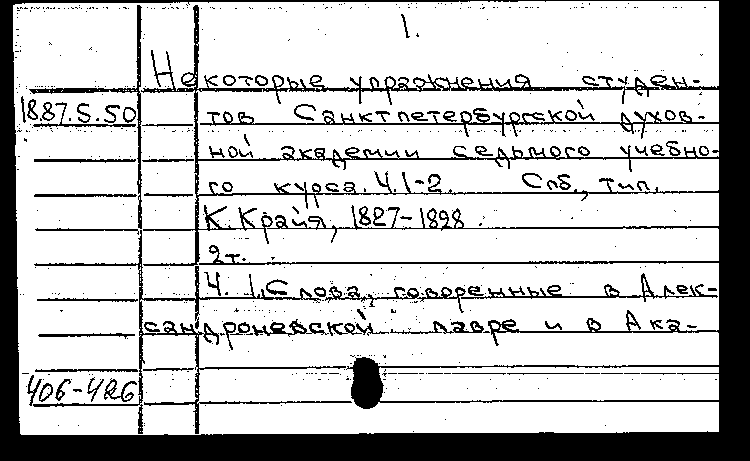 1.
Некоторые упражнения студен-
1887.S.50
тов Санктпетербургской духов-
ной академии седьмого учебно-
го курса. Ч.1-2. Спб., тип.
К. Крайя, 1827-1828.
2т.
Ч. 1. Слова, говоренные в Алек-
сандроневской лавре и в Ака-
406-426